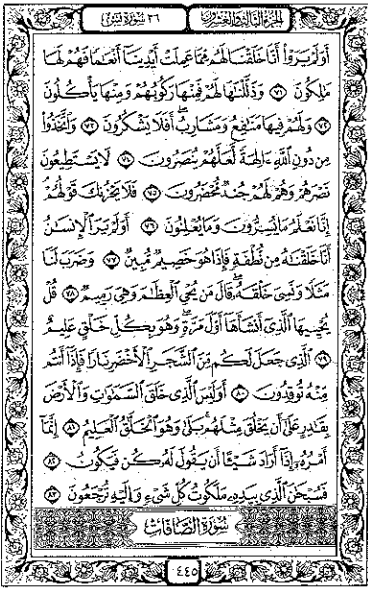 الجزء الثالث والعشرون ٣٦ سورة يس
أَوَلَمْ يَرَوْا۟ أَنَّا خَلَقْنَا لَهُم مِّمَّا عَمِلَتْ أَيْدِينَآ أَنْعَـٰمًا فَهُمْ لَهَا
مَـٰلِكُونَ ٧١ وَذَلَّلْنَـٰهَا لَهُمْ فَمِنْهَا رَكُوبُهُمْ وَمِنْهَا يَأْكُلُونَ
٧٢ وَلَهُمْ فِيهَا مَنَـٰفِعُ وَمَشَارِبُ ۖ أَفَلَا يَشْكُرُونَ ٧٣ وَٱتَّخَذُوا۟
مِن دُونِ ٱللَّهِ ءَالِهَةً لَّعَلَّهُمْ يُنصَرُونَ ٧٤ لَا يَسْتَطِيعُونَ
نَصْرَهُمْ وَهُمْ لَهُمْ جُندٌ مُّحْضَرُونَ ٧٥ فَلَا يَحْزُنكَ قَوْلُهُمْ ۘ
إِنَّا نَعْلَمُ مَا يُسِرُّونَ وَمَا يُعْلِنُونَ ٧٦ أَوَلَمْ يَرَ ٱلْإِنسَـٰنُ
أَنَّا خَلَقْنَـٰهُ مِن نُّطْفَةٍ فَإِذَا هُوَ خَصِيمٌ مُّبِينٌ ٧٧ وَضَرَبَ لَنَا
مَثَلًا وَنَسِىَ خَلْقَهُۥ ۖ قَالَ مَن يُحْىِ ٱلْعِظَـٰمَ وَهِىَ رَمِيمٌ ٧٨ قُلْ
يُحْيِيهَا ٱلَّذِىٓ أَنشَأَهَآ أَوَّلَ مَرَّةٍ ۖ وَهُوَ بِكُلِّ خَلْقٍ عَلِيمٌ
٧٩ ٱلَّذِى جَعَلَ لَكُم مِّنَ ٱلشَّجَرِ ٱلْأَخْضَرِ نَارًا فَإِذَآ أَنتُم
مِّنْهُ تُوقِدُونَ ٨٠ أَوَلَيْسَ ٱلَّذِى خَلَقَ ٱلسَّمَـٰوَٰتِ وَٱلْأَرْضَ
بِقَـٰدِرٍ عَلَىٰٓ أَن يَخْلُقَ مِثْلَهُم ۚ بَلَىٰ وَهُوَ ٱلْخَلَّـٰقُ ٱلْعَلِيمُ ٨١ إِنَّمَآ
أَمْرُهُۥٓ إِذَآ أَرَادَ شَيْـًٔا أَن يَقُولَ لَهُۥ كُن فَيَكُونُ ٨٢
فَسُبْحَـٰنَ ٱلَّذِى بِيَدِهِۦ مَلَكُوتُ كُلِّ شَىْءٍ وَإِلَيْهِ تُرْجَعُونَ ٨٣
سورة الصافات
٤٤٥